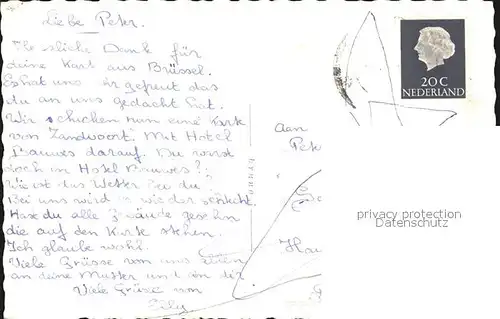 Liebe Peter.
Herzliche Dank für
deine Kart aus Brüssel.
Es hat uns er gefreut das
du an uns gedacht hat.
Wir schicken nun eine Karte
von Zandvoort. Mit Hotel
Bouwes darauf. Du warst
doch in Hotel Bouwes?
Wie ist das Wetter bei du
Bei uns wird wieder schlicht.
Hast du alle gesehn
die auf den Karte stehen.
Ich glaube wohl.
Viele Grüsse von uns allen
an deine Mutter und an dir.
Viele Grüse von
20 C
NEDERLAND
Aan
Pet
Ha
privacy protection
Datenschutz